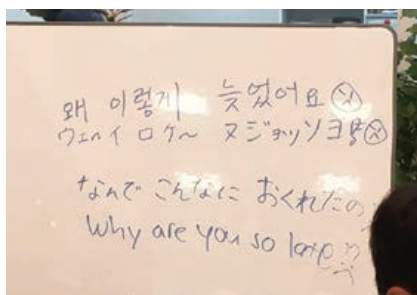 왜 이렇게 늦었어요
ウェ イロケ〜 ヌジョッソヨ
なんで こんなに おくれたの
Why are you so late